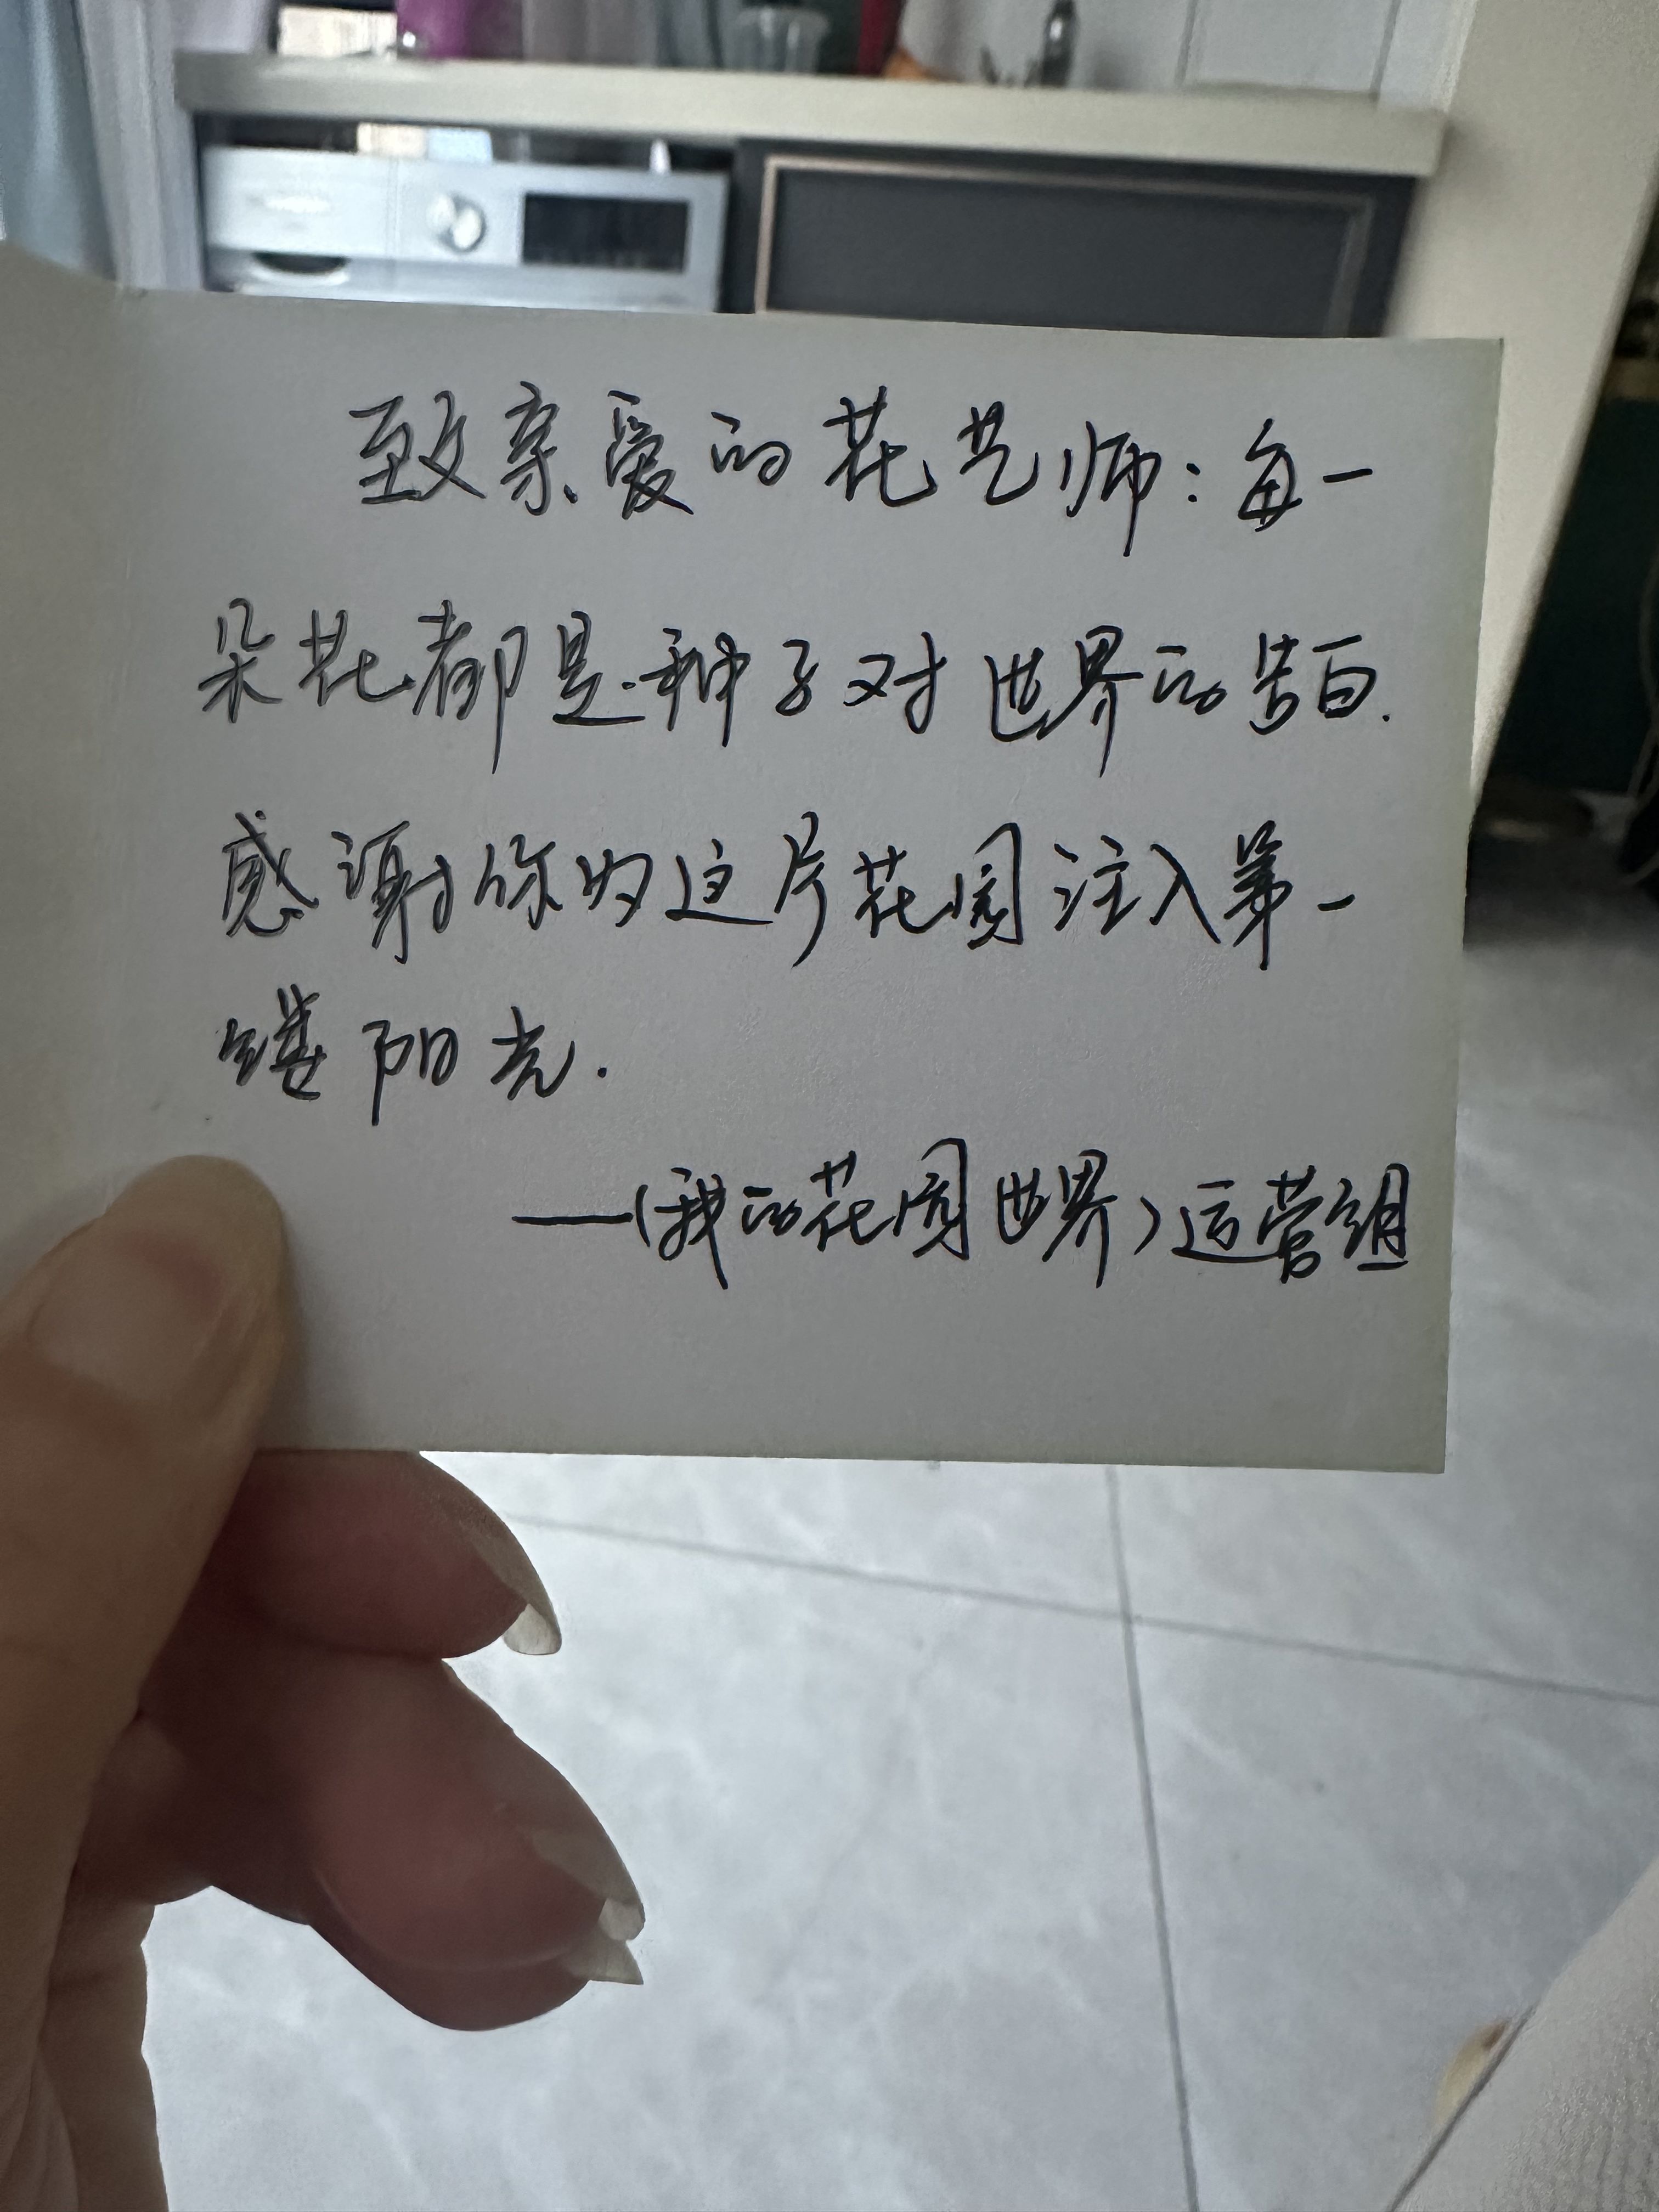 致亲爱的花艺师：每一
朵花都是种子对世界的告白.
感谢你为这片花园注入第一
缕阳光.
——（我的花园世界）运营组